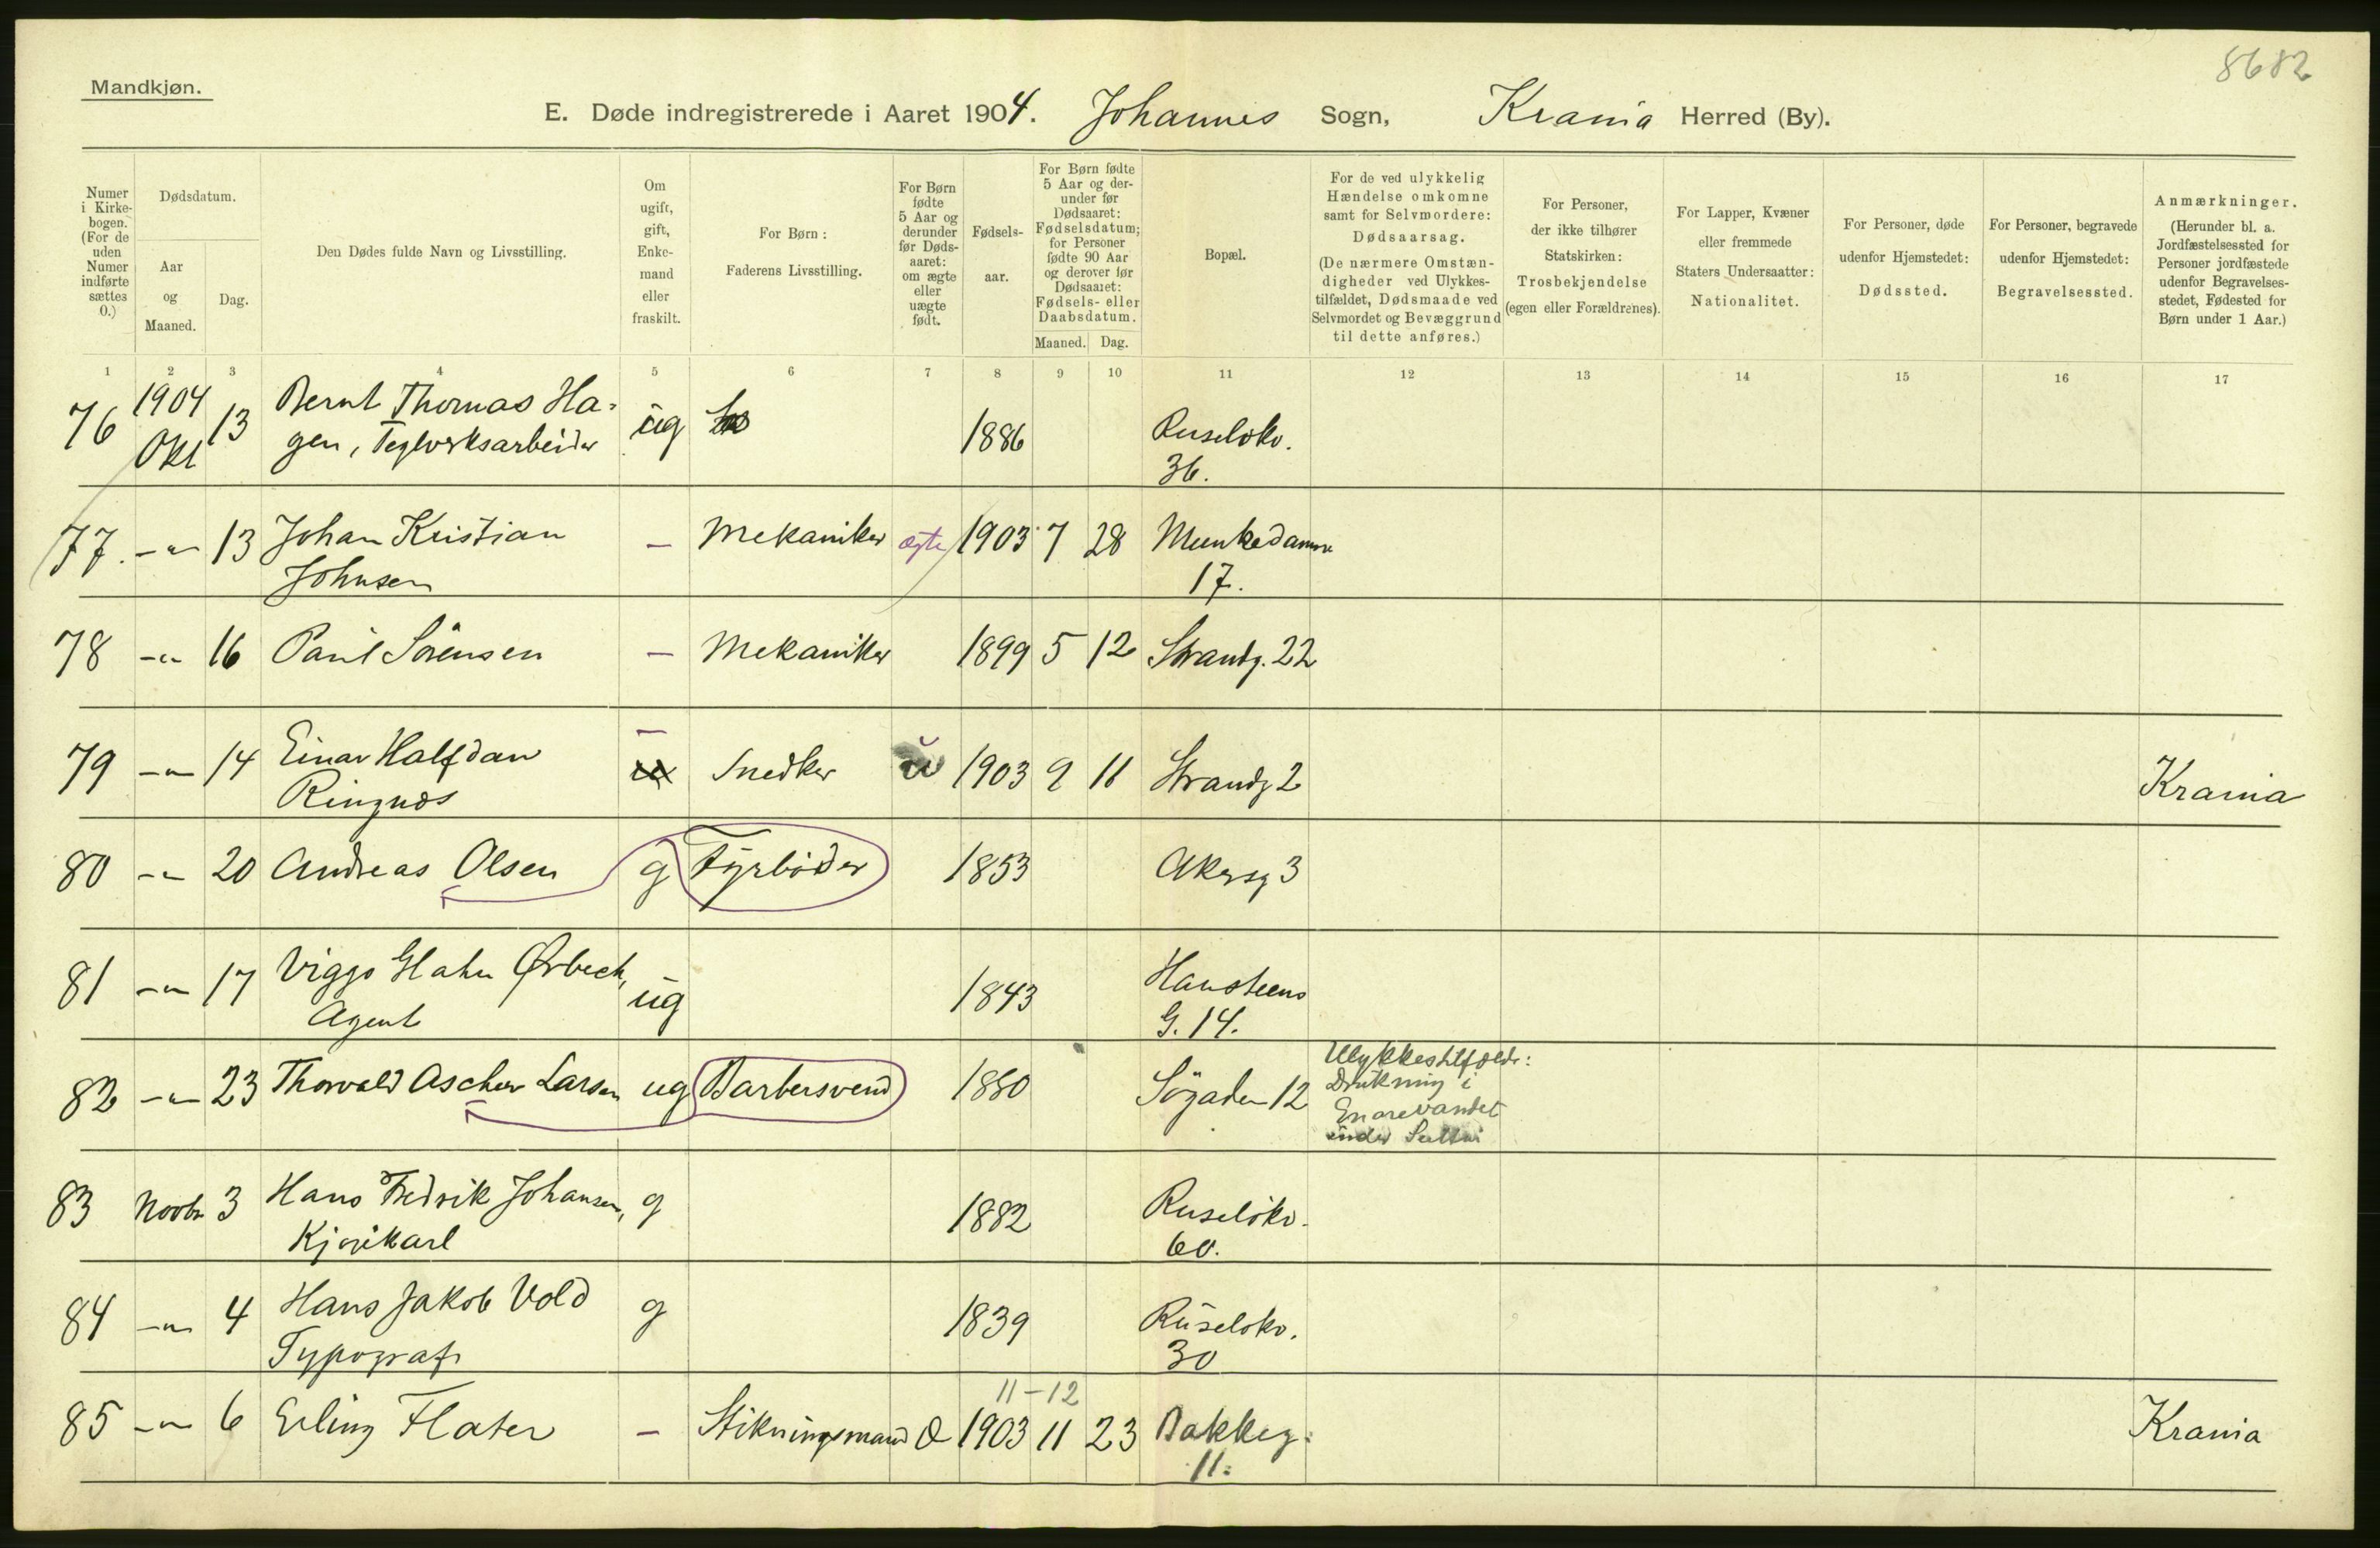 8682
Mandkjøn.
E. Døde indregistrerede i Aaret 1904. Johannes Sogn, Krania Herred (By).
Numer i Kirkebogen. (For de uden Numer indførte sættes 0.)
Dødsdatum.
Aar og Maaned.
Dag.
Den Dødes fulde Navn og Livsstilling.
Om ugift, gift, Enkemand eller fraskilt.
For Børn: Faderens Livsstilling.
For Børn fødte 5 Aar og derunder før Dødsaaret: om ægte eller uægte født.
Fødselsaar.
For Børn fødte 5 Aar og derunder før Dødsaaret: Fødselsdatum; for Personer fødte 90 Aar og derover før Dødsaaret: Fødsels- eller Daabsdatum.
Maaned. Dag.
Bopæl.
For de ved ulykkelig Hændelse omkomne samt for Selvmordere: Dødsaarsag. (De nærmere Omstændigheder ved Ulykkestilfældet, Dødsmaade ved Selvmordet og Bevæggrund til dette anføres.)
For Personer, der ikke tilhører Statskirken: Trosbekjendelse (egen eller Forældrenes).
For Lapper, Kvæner eller fremmede Staters Undersaatter: Nationalitet.
For Personer, døde udenfor Hjemstedet: Dødssted.
For Personer, begravede udenfor Hjemstedet: Begravelsessted.
Anmærkninger. (Herunder bl. a. Jordfæstelsessted for Personer jordfæstede udenfor Begravelsesstedet, Fødested for Børn under 1 Aar.)
1 2 3 4 5 6 7 8 9 10 11 12 13 14 15 16 17
76 1904 Okt 13 Bernt Thomas Hagen, Teglverksarbeider ug 1886 Ruseløkv. 36.
77. -"- 13 Johan Kristian Johnsen - Mekaniker ægte 1903 7 28 Munkedamsv 17.
78 -"- 16 Paul Sørensen - Mekaniker 1899 5 12 Strandg. 22
79 -"- 14 Einar Halfdan Ringnæs - Snedker u 1903 9 11 Strandg 2 Krania
80 -"- 20 Andreas Olsen g Fyrbøder 1853 Akersg 3
81 -"- 17 Viggo Hahn Ørbeck, Agent ug 1843 Hansteens G. 14.
82 -"- 23 Thorvald Ascher Larsen ug Barbersvend 1880 Søgaden 12 Ulykkestilfælde: Drukning i Enarevandet under
83 Novbr 3 Hans Fredrik Johansen, Kjørekarl g 1882 Ruseløkv. 60.
84 -"- 4 Hans Jakob Vold Typograf g 1839 Ruseløkv. 30
11-12
85 -"- 6 Erling Flater - Stikningsmand 1903 11 23 Bakkeg: 11: Krania